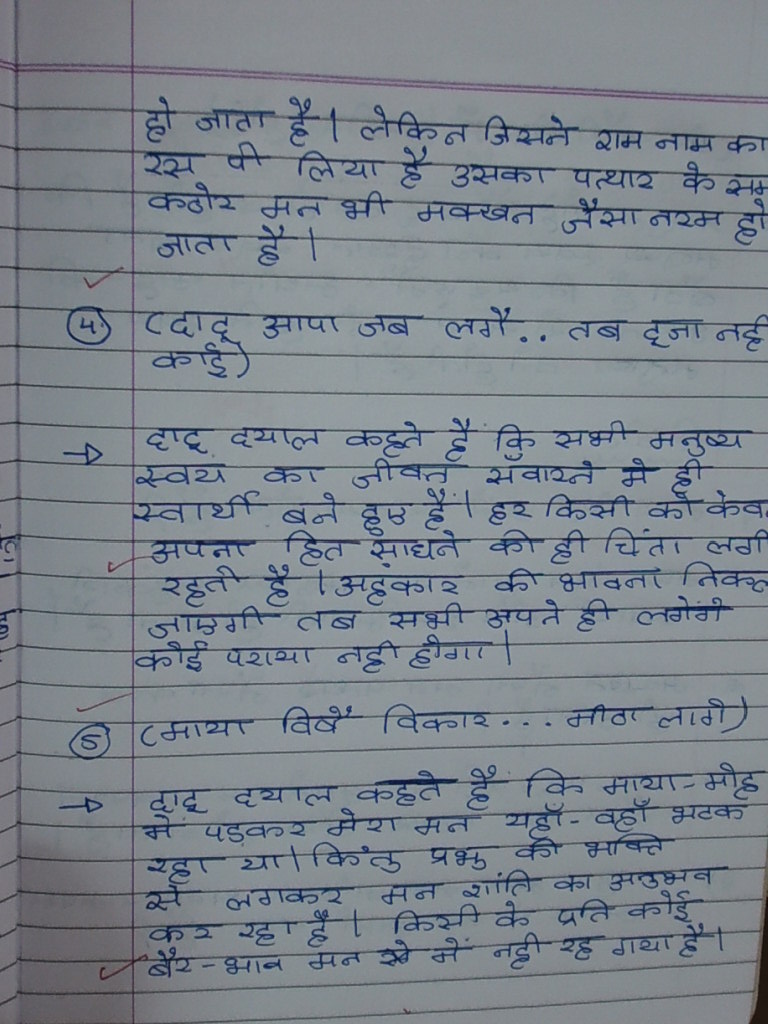 हो जाता है। लेकिन जिसने राम नाम का
रस पी लिया है उसका पत्थार के सम
कठोर मन भी मक्खन जैसा नरम हो
जाता है।
④ (दादू आपा जब लगै.. तब दूजा नही
कोई)
→ दादू दयाल कहते है कि सभी मनुष्य
स्वय का जीवन सवारने मे ही
स्वार्थी बने हुए है। हर किसी को केव
अपना हित साधने की ही चिंता लगी
रहती है। अहकार की भावना निकल
जाएगी तब सभी अपने ही लगेगे
कोई पराया नही होगा।
⑤ (माया विषै विकार... मीठा लागे)
→ दादू दयाल कहते है कि माया-मोह
मे पड़कर मेरा मन यहाँ-वहाँ भटक
रहा था। किंतु प्रभु की भक्ति
से लगकर मन शांति का अनुभव
कर रहा है। किसी के प्रति कोई
बैर-भाव मन मे नही रह गया है।